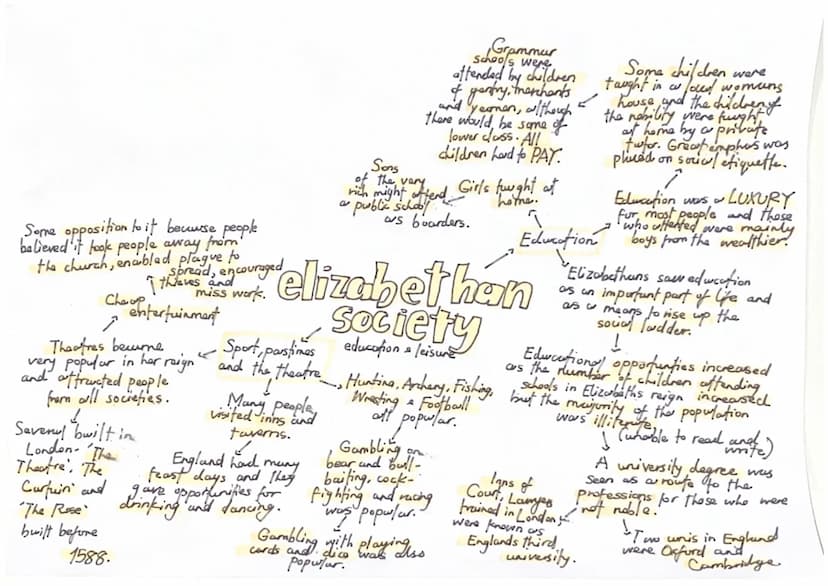 elizabethan
society
education & leisure
Education
Girls taught at
home.
Sons
of the very
rich might attend
a public school
as boarders.
Education was a LUXURY
for most people and those
who attented were mainly
boys from the wealthier.
Some children were
taught in a local womans
house and the children of
the nobility were taught
at home by a private
tutor. Great emphas was
placed on social etiquette.
Grammar
schools were
attended by children
of gentry, merchants
and yeoman, although
there would be some of
lower class. All
children had to PAY.
Elizabethans saw education
as an important part of life and
as a means to rise up the
social ladder.
Educational opportunties increased
as the number of children attending
schools in Elizabeths reign increased
but the majority of the population
was illiterate.
(unable to read and
write)
A university degree was
seen as a route to the
professions for those who were
not noble.
Two unis in England
were Oxford and
Cambridge.
Inns of
Court, Lawyers
trained in London
were known as
Englands third
university.
Sport, pastimes
and the theatre
Hunting, Archery, Fishing,
Wresting & Football
all popular.
Gambling on
bear and bull-
baiting, cock-
fighting and racing
was popular.
Gambling with playing
cards and dice was also
popular.
Many people
visited inns and
taverns.
England had many
feast days and they
gave opportunities for
drinking and dancing.
Theatres became
very popular in her reign
and attracted people
from all societies.
Cheap
entertainment
Some opposition to it because people
believed it took people away from
the church, enabled plague to
spread, encouraged
thieves and
miss work.
Several built in
London- 'The
Theatre', 'The
Curtain' and
'The Rose'
built before
1588.